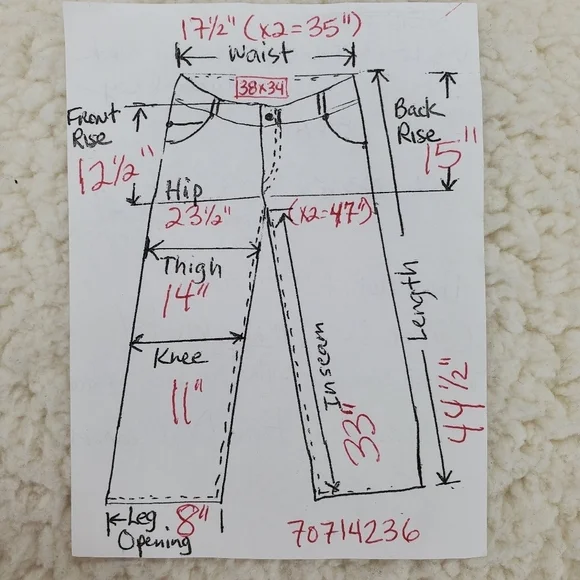 17½" (x2=35")
Waist
38x34
Front
Rise
12½"
Back
Rise
15"
Hip
23½"
(x2=47")
Thigh
14"
Knee
11"
Inseam
33"
Length
44½"
Leg
Opening
8"
70714236